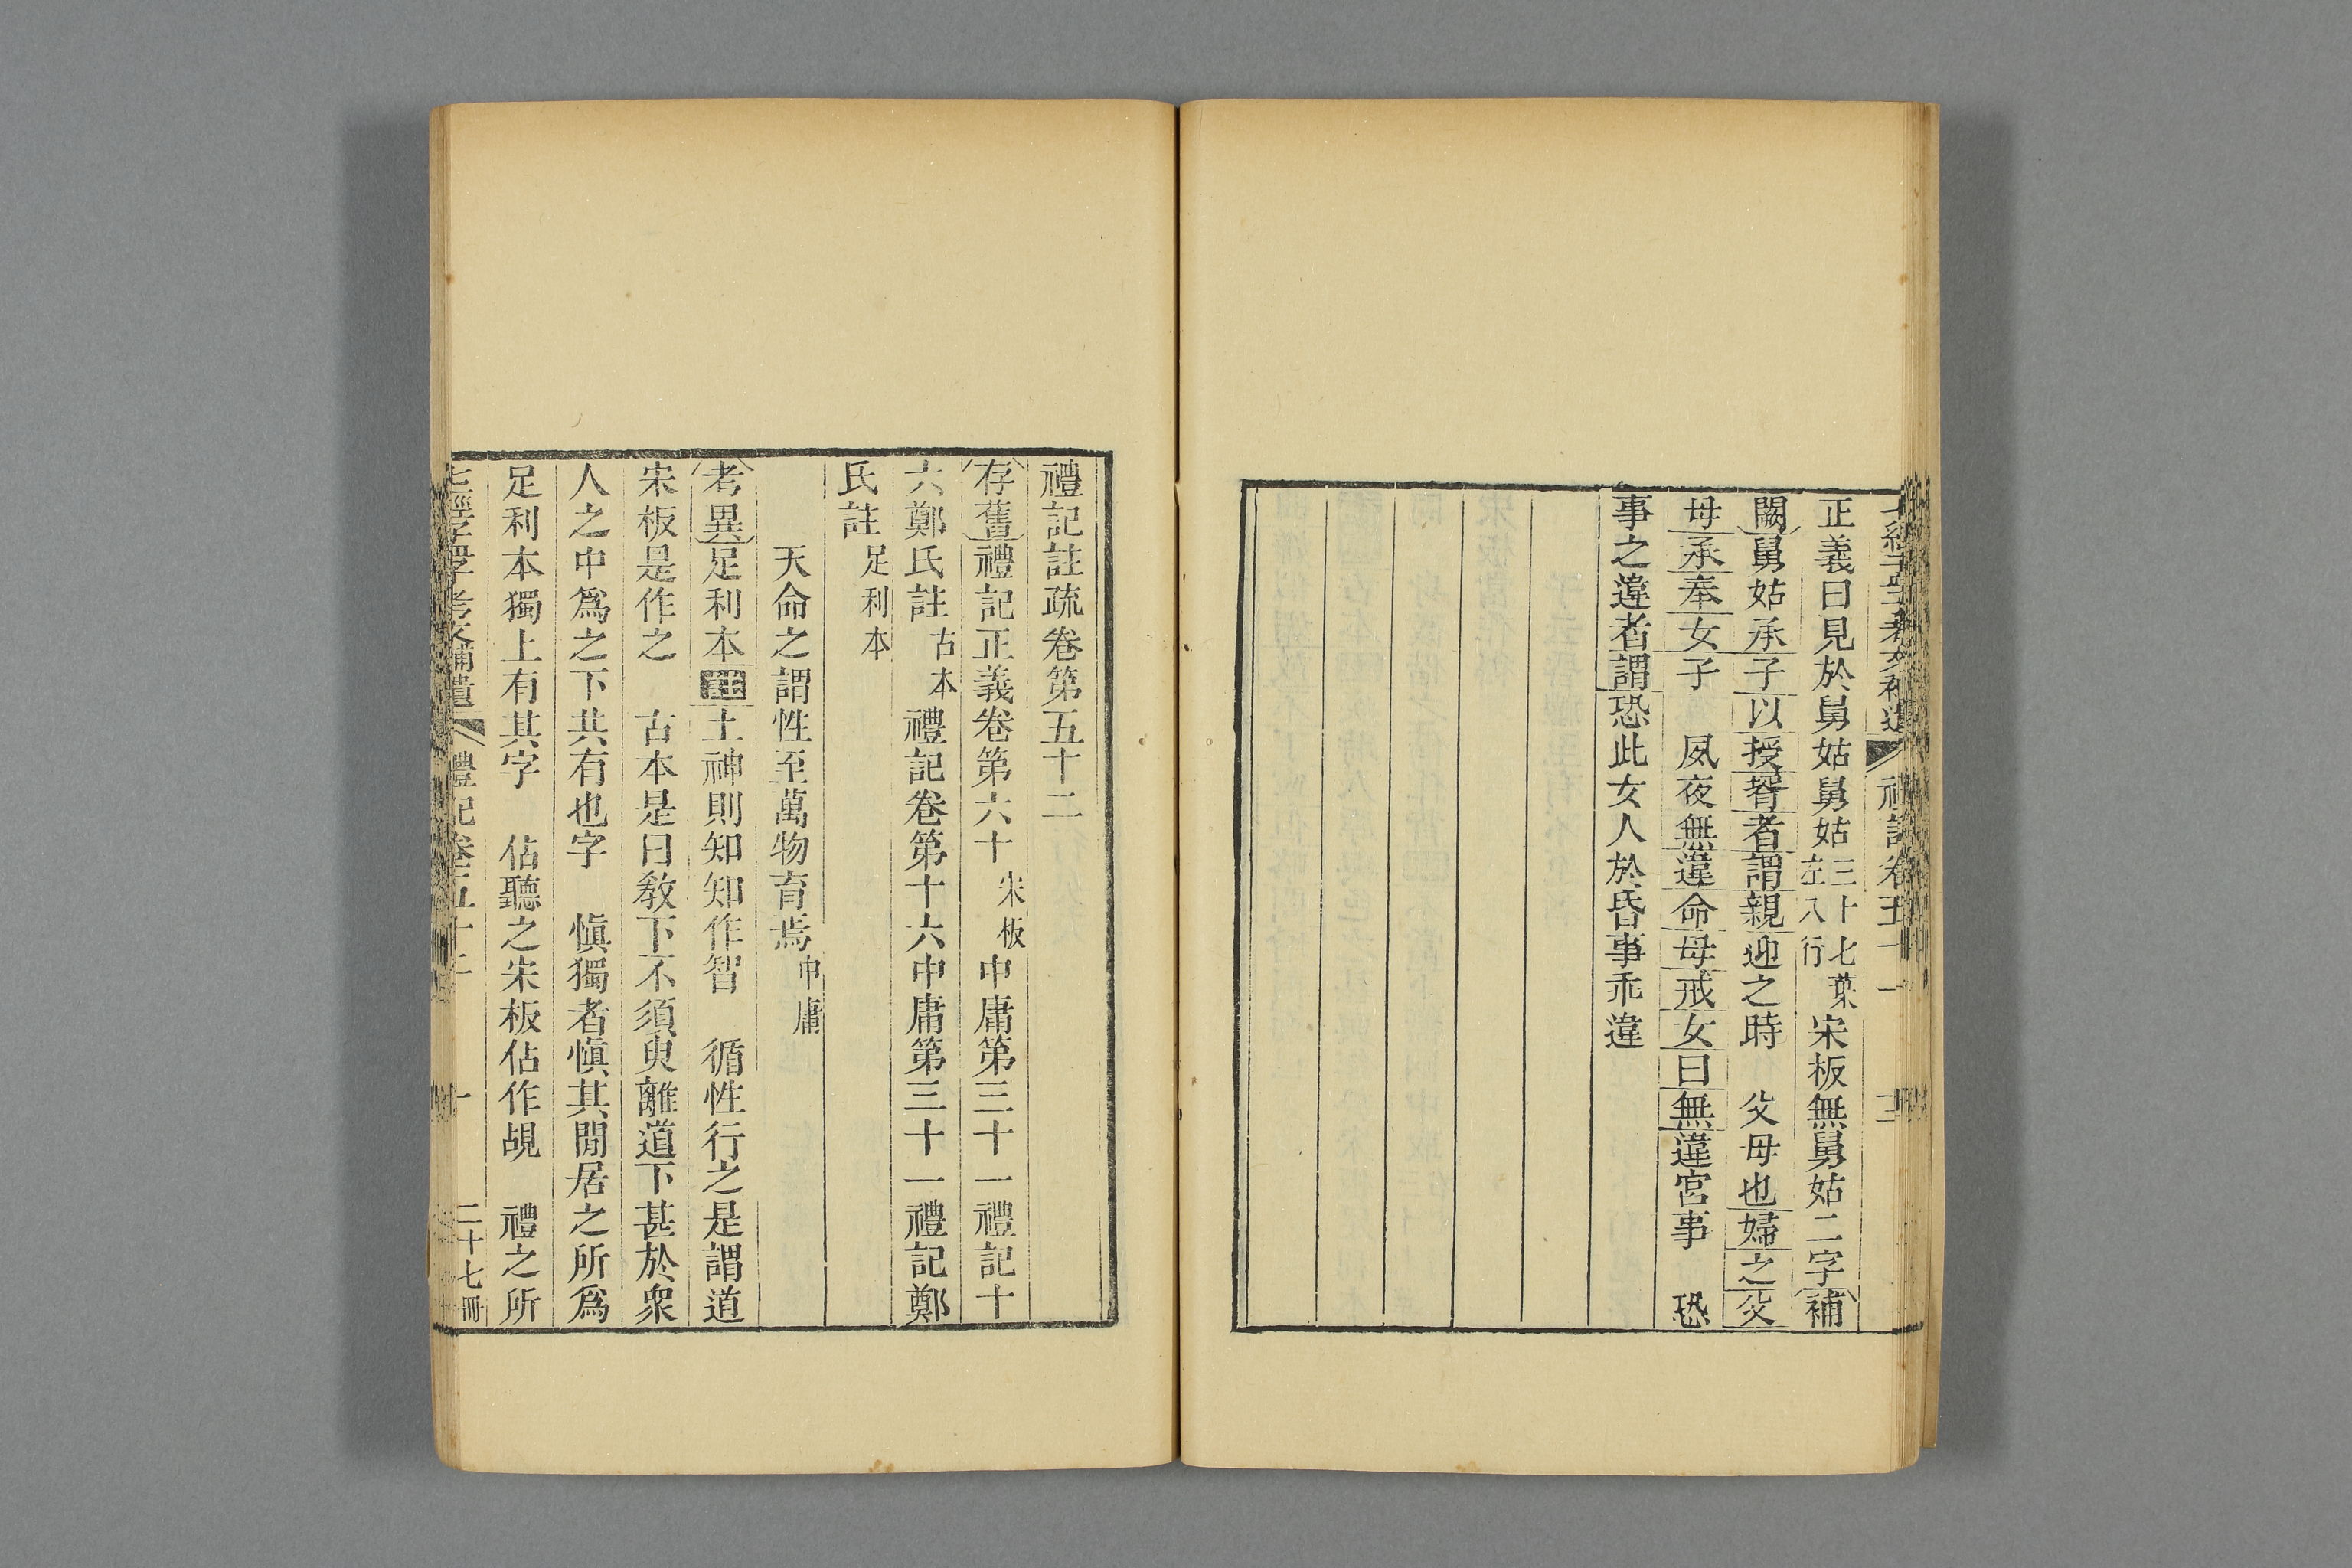 正義曰見於舅姑舅姑三十七葉左八行宋板無舅姑二字補
闕舅姑承子以授壻者謂親迎之時　父母也婦之父
母承奉女子　夙夜無違命母戒女曰無違宮事　恐
事之違者謂恐此女人於昏事乖違
禮記註疏卷第五十二
存舊禮記正義卷第六十宋板中庸第三十一禮記十
六鄭氏註古本　禮記卷第十六中庸第三十一禮記鄭
氏註足利本
天命之謂性至萬物育焉中庸
考異足利本註土神則知知作智　循性行之是謂道
宋板是作之　古本是曰敎下不須臾離道下甚於衆
人之中爲之下共有也字　愼獨者愼其閒居之所爲
足利本獨上有其字　佔聽之宋板佔作覘　禮之所
七經孟子考文補遺　禮記卷五十二　一　二十七冊